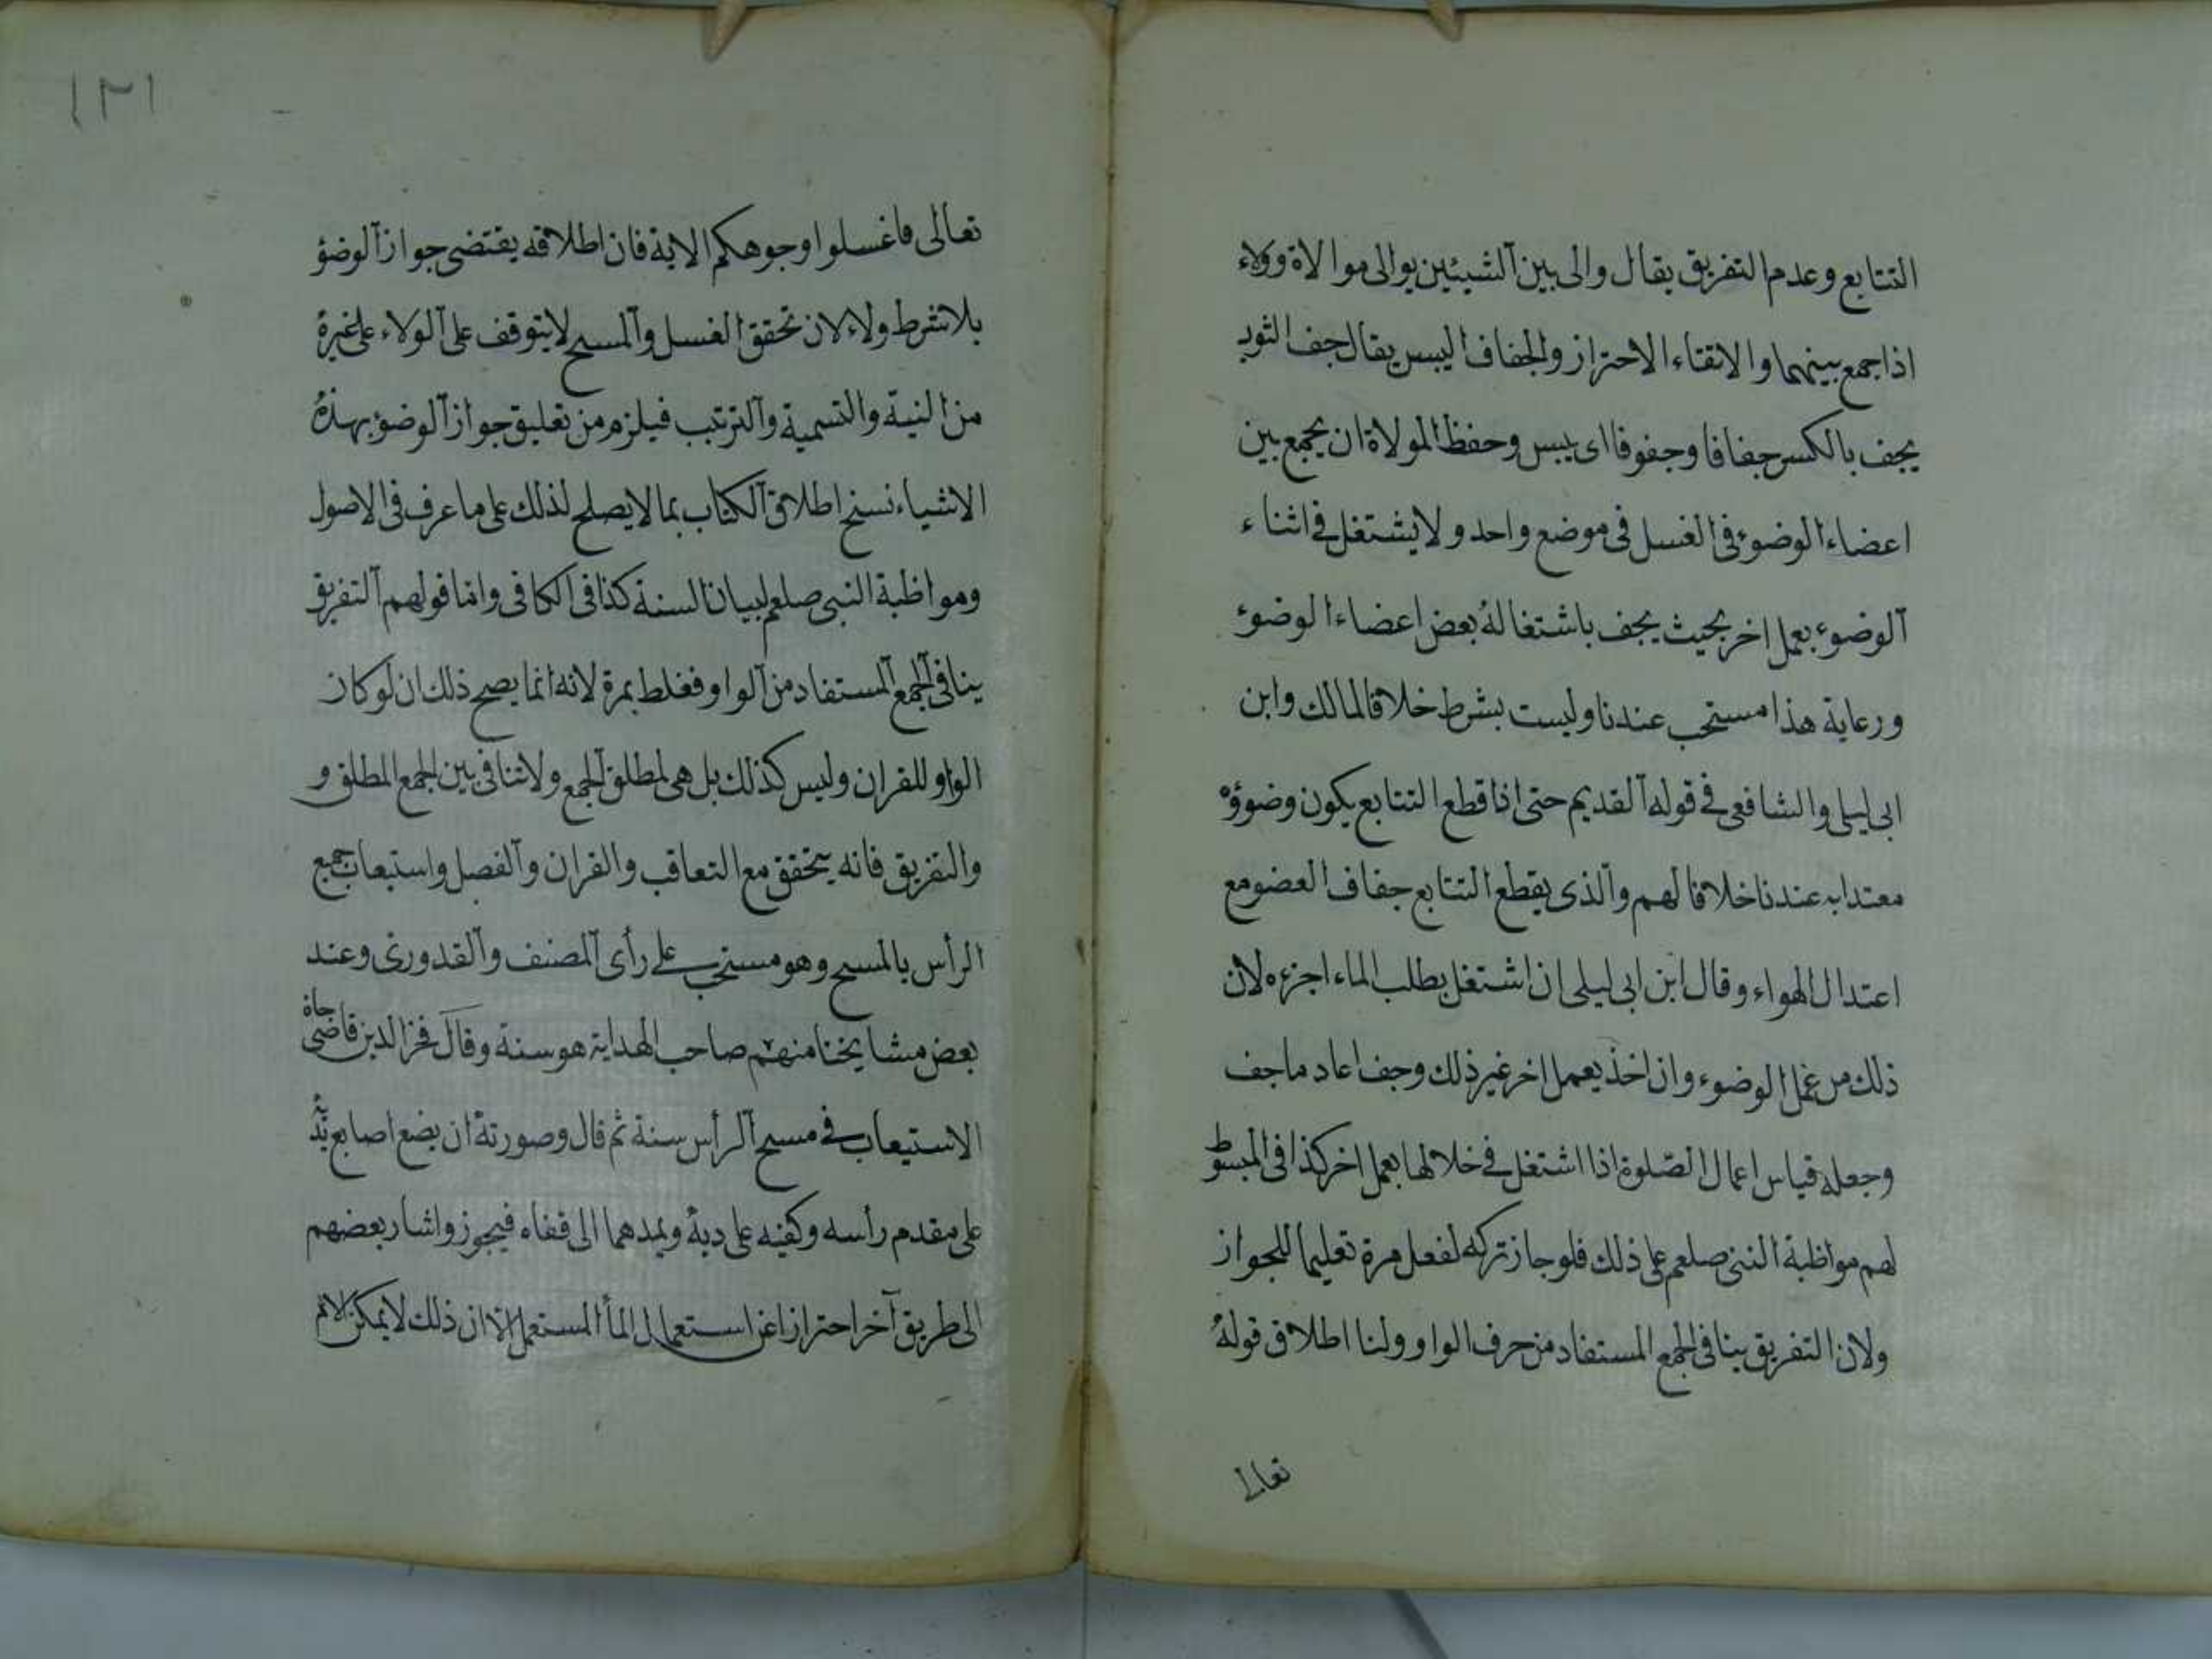 التتابع وعدم التفريق يقال والى بين الشيئين يوالى موالاة وولاء
اذا جمع بينهما والاتقاء الاحتراز والجفاف اليبس يقال جف الثوب
يجف بالكسر جفافا وجفوفا اى يبس وحفظ المولاة ان يجمع بين
اعضاء الوضوء فى الغسل فى موضع واحد ولا يشتغل فى اثناء
الوضوء بعمل اخر بحيث يجف باشتغاله بعض اعضاء الوضوء
ورعاية هذا مستحب عندنا وليست بشرط خلافا لمالك وابن
ابى ليلى والشافعى فى قوله القديم حتى اذا قطع التتابع يكون وضوؤه
معتدا به عندنا خلافا لهم والذى يقطع التتابع جفاف العضو مع
اعتدال الهواء وقال ابن ابى ليلى ان اشتغل بطلب الماء اجزءه لان
ذلك من عمل الوضوء وان اخذ بعمل اخر غير ذلك وجف اعاد ما جف
وجعله قياس اعمال الصلوة اذا اشتغل فى خلالها بعمل اخر كذا فى المبسوط
لهم مواظبة النبى صلعم على ذلك فلو جاز تركه لفعل مرة تعليما للجواز
ولان التفريق ينافى الجمع المستفاد من حرف الواو ولنا اطلاق قوله
تعالى
١٢١
تعالى فاغسلوا وجوهكم الاية فان اطلاقه يقتضى جواز الوضؤ
بلا شرط ولاء لان تحقق الغسل والمسح لا يتوقف على الولاء على غيره
من النية والتسمية والترتب فيلزم من تعليق جواز الوضوء بهذه
الاشياء نسخ اطلاق الكتاب بما لا يصلح لذلك على ما عرف فى الاصول
ومواظبة النبى صلعم لبيان السنة كذا فى الكافى واما قولهم التفريق
ينافى الجمع المستفاد من الواو فغلط بمرة لانه انما يصح ذلك ان لو كان
الواو للقران وليس كذلك بل هى لمطلق الجمع ولا تنافى بين الجمع المطلق و
والتفريق فانه يتحقق مع التعاقب والقران والفصل واستيعاب جميع
الرأس بالمسح وهو مستحب على رأى المصنف والقدورى وعند
بعض مشايخنا منهم صاحب الهداية هو سنة وقال فخر الدين قاضى خان
الاستيعاب فى مسح الرأس سنة ثم قال وصورته ان يضع اصابع يديه
على مقدم رأسه وكفيه على ديه ويمدهما الى قفاه فيجوز واشار بعضهم
الى طريق آخر احترازا عن استعمال المأ المستعمل الا ان ذلك لا يمكن الا